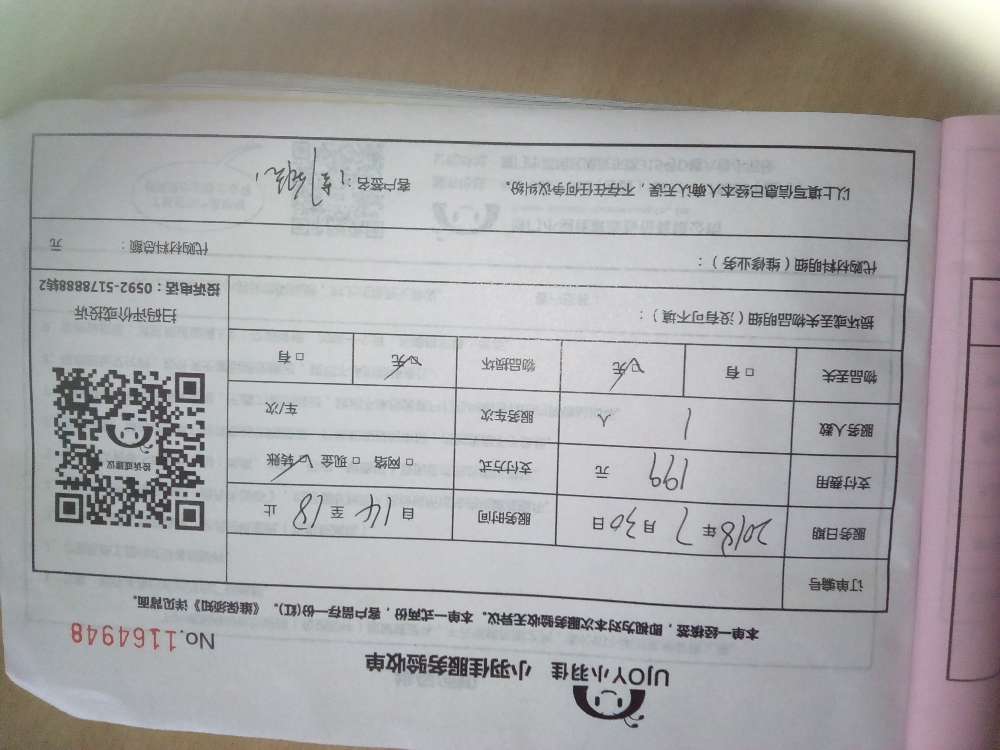 UJOY小羽佳 小羽佳服务验收单
No.1164948
本单一经核签，即视为对本次服务验收无异议。本单一式两份，客户留存一份(红)。《维保须知》详见背面。
订单编号
服务日期 2018年7月30日 服务时间 自14至18止
支付费用 199元 支付方式 □网络 □现金 ☑转账
服务人数 1人 服务车次 车/次
物品丢失 □有 ☑无 物品损坏 ☑无 □有
投诉或建议
扫码评价或投诉
投诉电话：0592-5178888转2
损坏或丢失物品明细（没有可不填）：
代购材料明细（维修业务）： 代购材料总额： 元
以上填写信息已经本人确认无误，不存在任何争议纠纷。 客户签名：